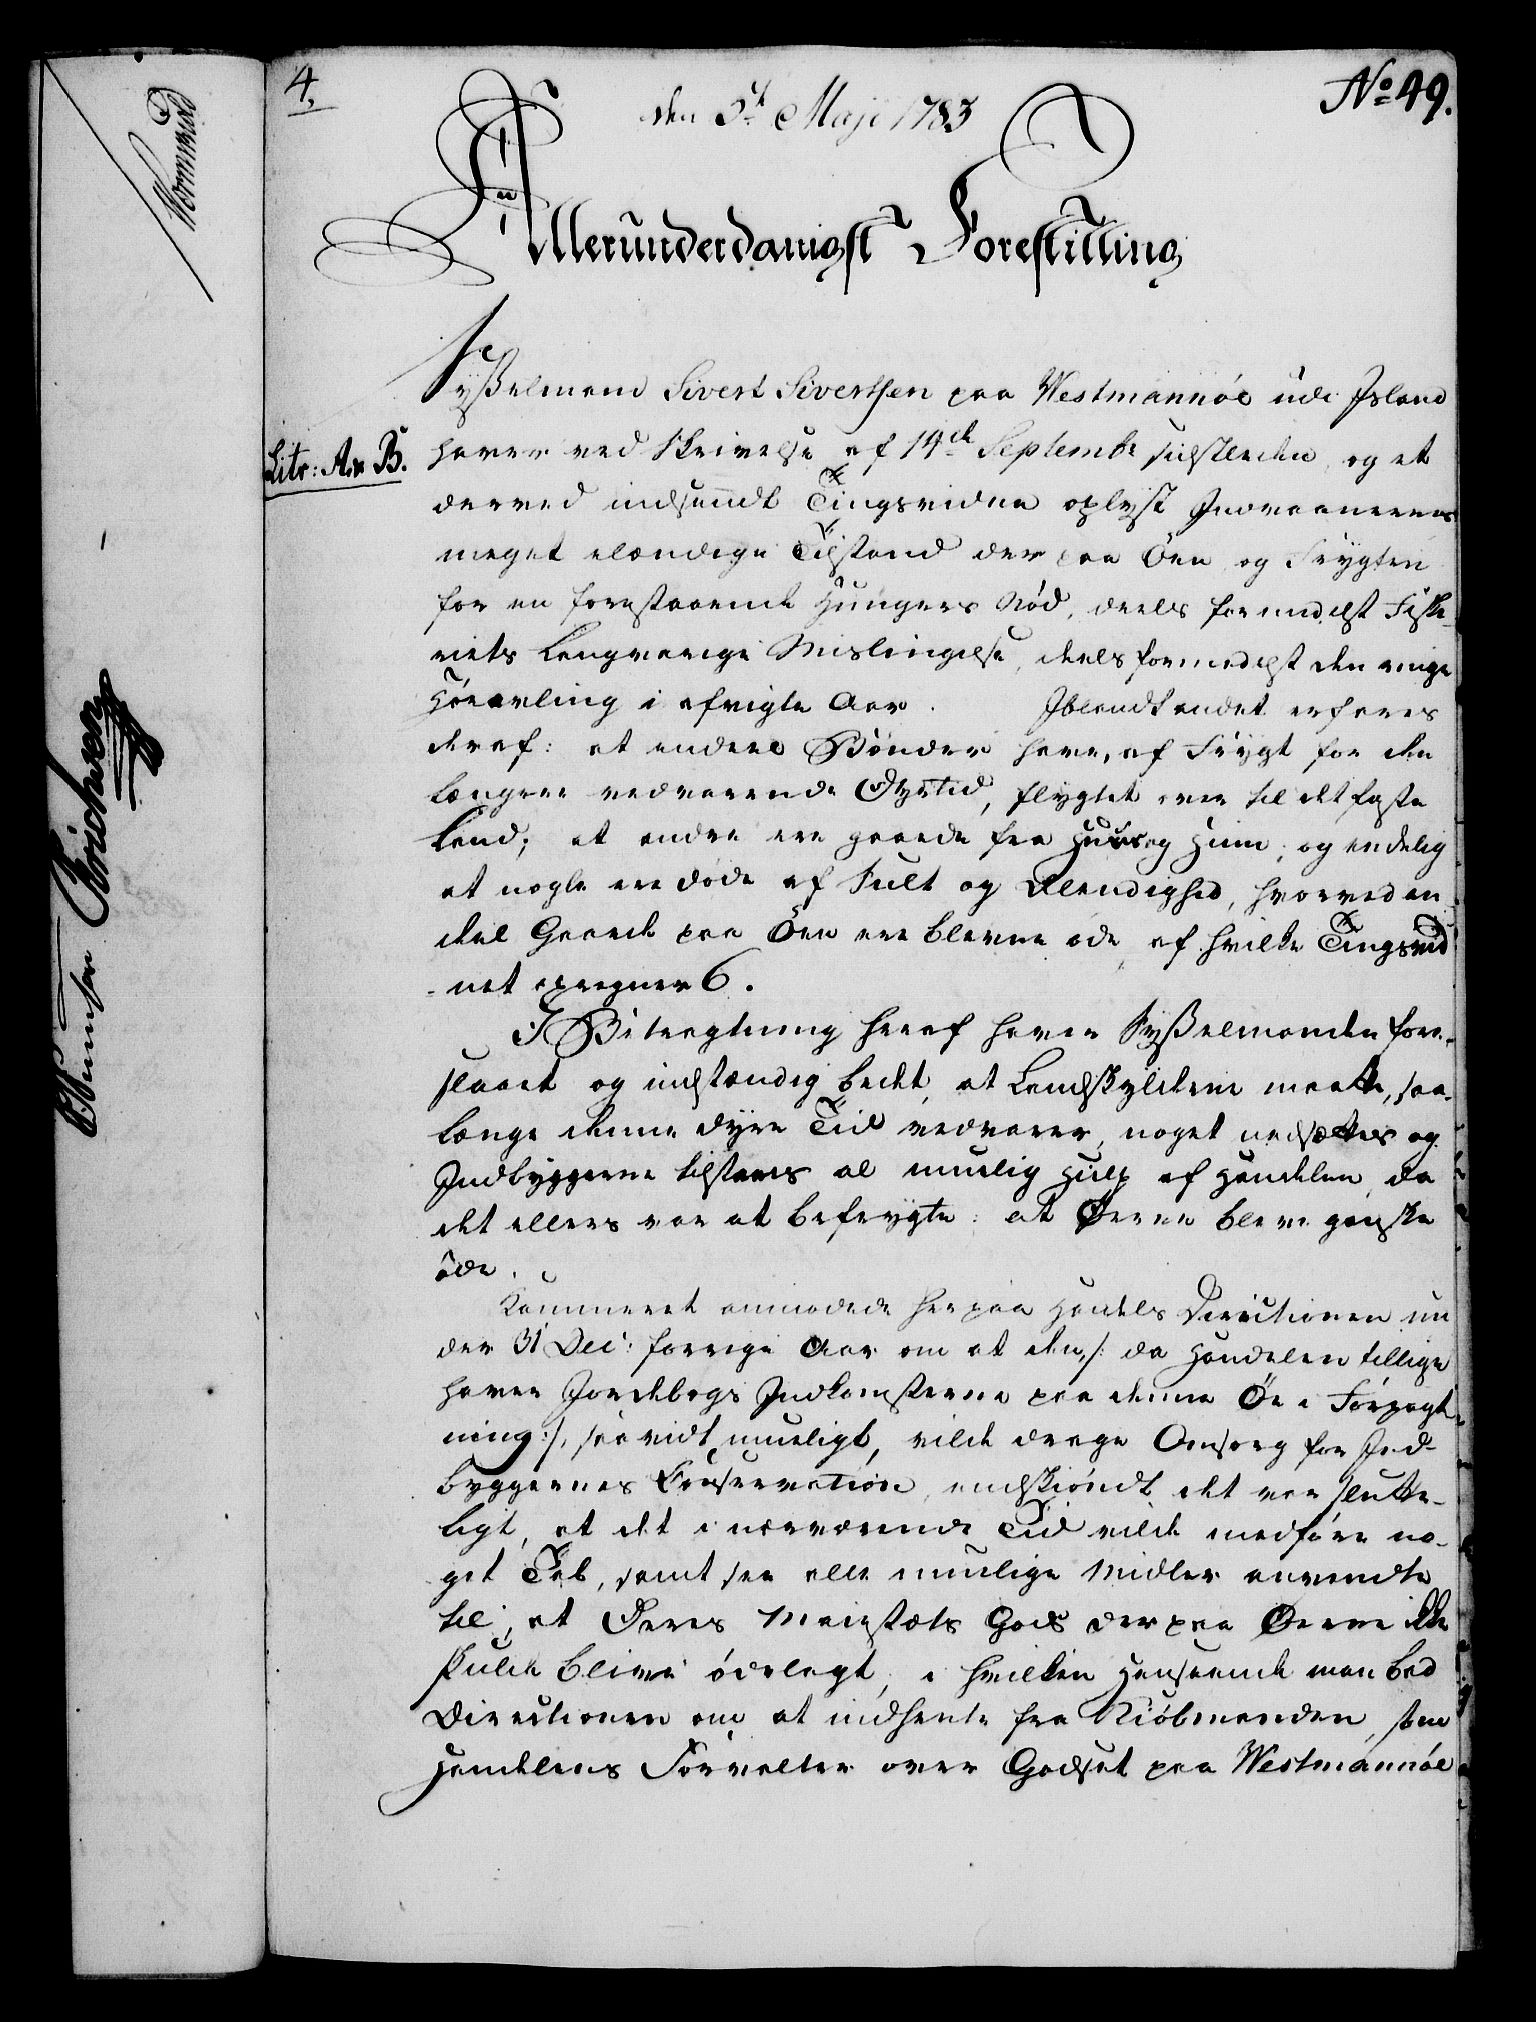 4.
No 49.
den 5t Maji 1783
Allerunderdanigst Forestilling
Sysselmand Sivert Sivertsen paa Westmannöe udi Island
Litr: A & B.
haver ved Skrivelse af 14de Septembr sidstleden, og et
derved indsendt Tingsvidne oplyst Indvaanernes
meget elændige Tilstand der paa Öen og Frygten
for en forestaaende Hungers Nöd, deels formedelst Fiske-
riets langvarige Mislingelse, deels formedelst den ringe
Höeavling i afvigte Aar. Iblandt andet erfares
deraf: at endeel Bönder have, af Frygt for den
længere vedvarende Dyrtid, flygtet over til det faste
Land; at andre ere gaaede fra Huus og Hiem; og endelig
at nogle ere döde af Sult og Elendighed, hvorved en
deel Gaarde paa Öen ere blevne öde, af hvilke Tingsvid-
net opregner 6.
I Betragtning heraf haver Sysselmanden fore-
slaaet og indstændig bedet, at Landskylden maatte, saa-
længe denne dyre Tid vedvarer, noget nedsættes og
Indbyggerne tilstaaes al muelig Hielp af Handelen, da
det ellers var at befrygte: at Öerne bleve ganske
öde.
Kammeret anmodede herpaa Handels Directionen un
der 31 Dec: forrige Aar om at den, /: da Handelen tillige
haver Jordebogs Indkomsterne paa denne Öe i Forpagt-
ning :/, saavidt mueligt, vilde drage Omsorg for Ind-
byggernes Conservation, endskiöndt det var slutte-
ligt, at det i nærværende Tid vilde medföre no-
get Tab, samt see alle muelige Midler anvendte
til, at Deres Majestæts Gods der paa Öerne ikke
skulde blive ödelagt, i hvilken Henseende man bad
Directionen om at indhente fra Kiöbmanden, som
Handelens Forvalter over Godset paa Westmannöe